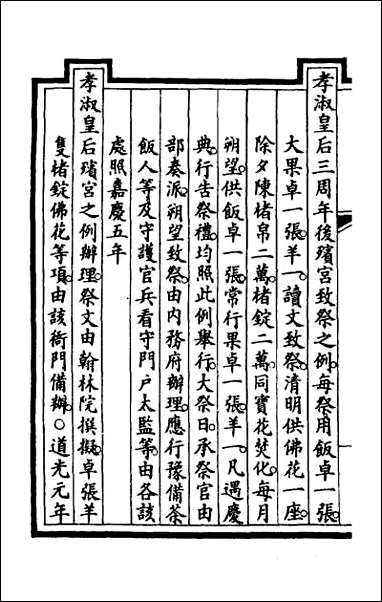 孝淑皇后三周年後殯宮致祭之例。每祭用飯卓一張。
大果卓一張。羊一。讀文致祭。清明供佛花一座。
除夕陳楮帛二萬。楮錠二萬。同寶花焚化。每月
朔望。供飯卓一張。常行果卓一張。羊一。凡遇慶
典。行告祭禮。均照此例舉行。大祭日。承祭官由
部奏派。朔望致祭。由內務府辦理。應行豫備茶
飯人等。及守護官兵看守門戶太監等。由各該
處照嘉慶五年
孝淑皇后殯宮之例辦理。祭文由翰林院撰擬。卓張羊
隻楮錠佛花等項。由該衙門備辦。○道光元年